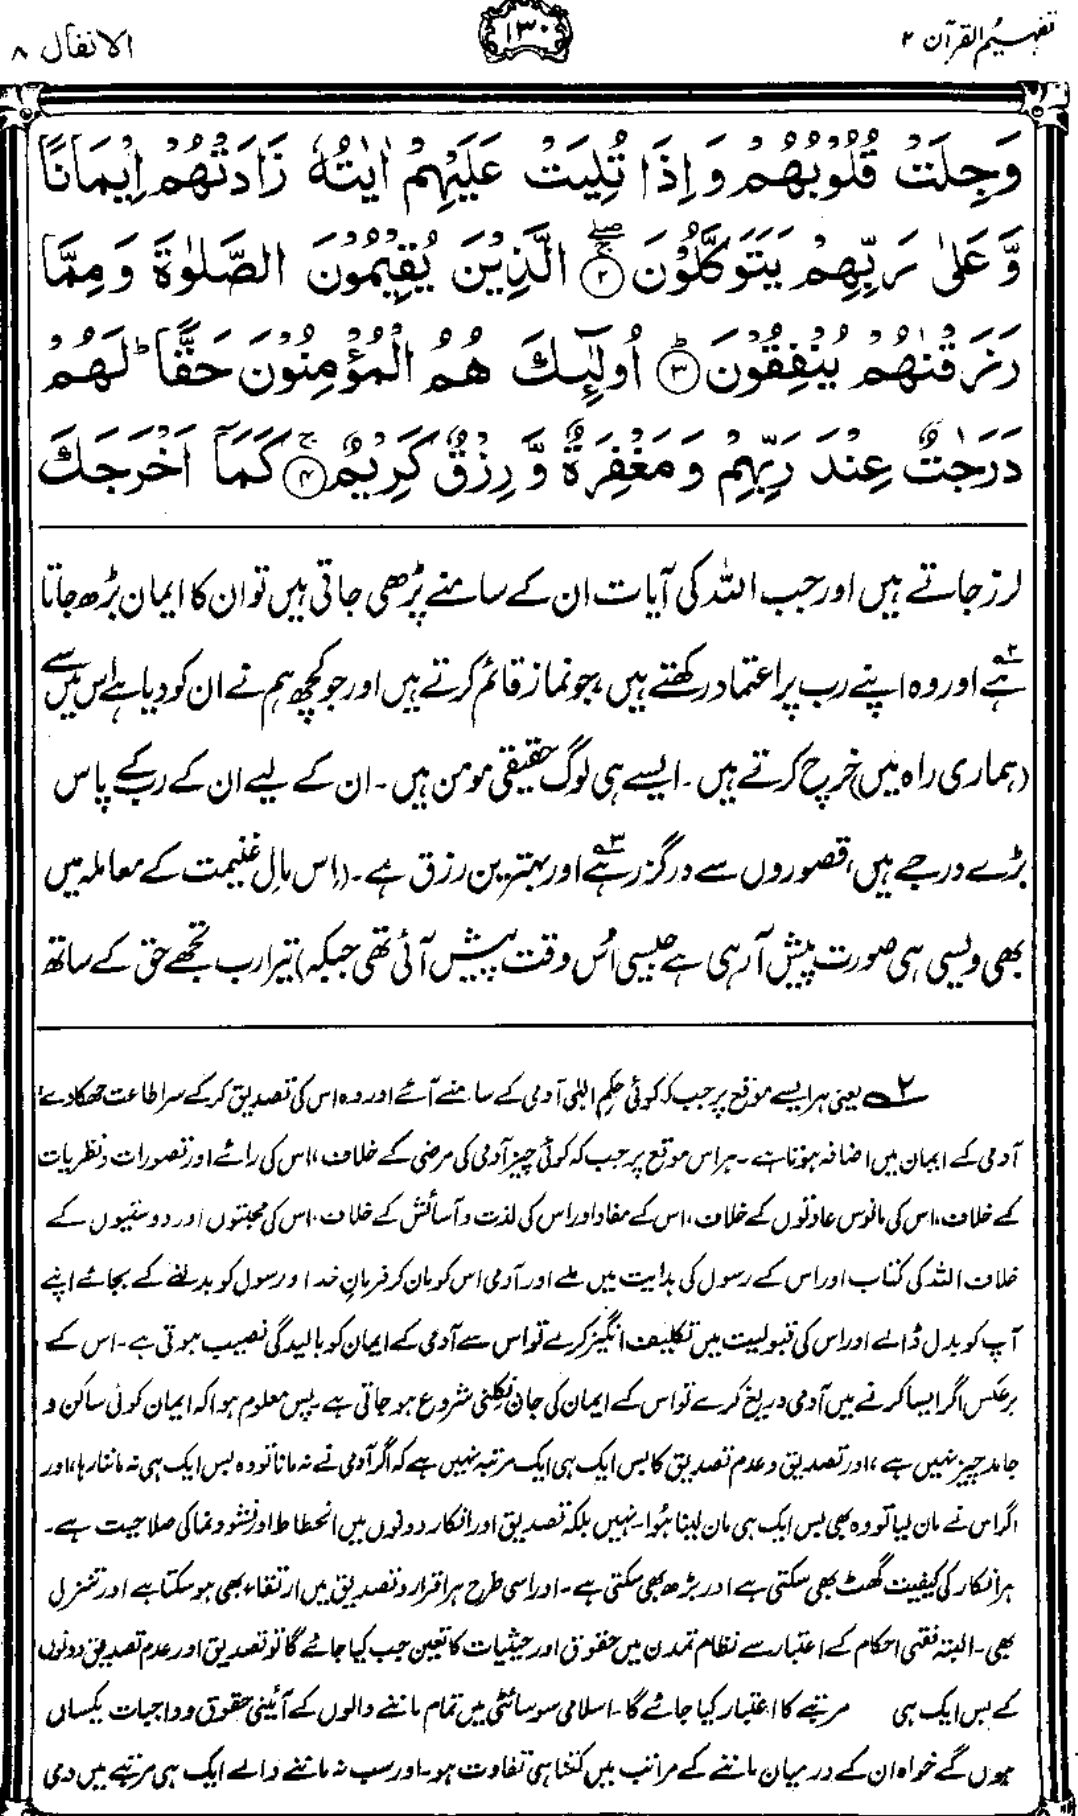 تفہیم القرآن ۲
۱۳۰
الانفال ۸
وَجِلَتْ قُلُوْبُهُمْ وَاِذَا تُلِيَتْ عَلَيْهِمْ اٰيٰتُهٗ زَادَتْهُمْ اِيْمَانًا
وَّعَلٰى رَبِّهِمْ يَتَوَكَّلُوْنَ ۚۖ۝۲ الَّذِيْنَ يُقِيْمُوْنَ الصَّلٰوةَ وَمِمَّا
رَزَقْنٰهُمْ يُنْفِقُوْنَ ؕ۝۳ اُولٰٓئِكَ هُمُ الْمُؤْمِنُوْنَ حَقًّا ؕ لَهُمْ
دَرَجٰتٌ عِنْدَ رَبِّهِمْ وَمَغْفِرَةٌ وَّرِزْقٌ كَرِيْمٌ ۚ۝۴ كَمَآ اَخْرَجَكَ
لرز جاتے ہیں اور جب اللہ کی آیات ان کے سامنے پڑھی جاتی ہیں تو ان کا ایمان بڑھ جاتا
ہے۲ اور وہ اپنے رب پر اعتماد رکھتے ہیں، جو نماز قائم کرتے ہیں اور جو کچھ ہم نے ان کو دیا ہے اس میں سے
(ہماری راہ میں) خرچ کرتے ہیں۔ ایسے ہی لوگ حقیقی مومن ہیں۔ ان کے لیے ان کے رب کے پاس
بڑے درجے ہیں، قصوروں سے درگزر ہے۳ اور بہترین رزق ہے۔ (اِس مالِ غنیمت کے معاملہ میں
بھی ویسی ہی صورت پیش آ رہی ہے جیسی اُس وقت پیش آئی تھی جبکہ) تیرا رب تجھے حق کے ساتھ
۲ یعنی ہر ایسے موقع پر جب کہ کوئی حکمِ الٰہی آدمی کے سامنے آئے اور وہ اس کی تصدیق کر کے سرِ اطاعت جھکا دے،
آدمی کے ایمان میں اضافہ ہوتا ہے۔ ہر اس موقع پر جب کہ کوئی چیز آدمی کی مرضی کے خلاف، اس کی رائے اور تصورات و نظریات
کے خلاف، اس کی مانوس عادتوں کے خلاف، اس کے مفاد اور اس کی لذت و آسائش کے خلاف، اس کی محبتوں اور دوستیوں کے
خلاف اللہ کی کتاب اور اس کے رسول کی ہدایت میں ملے اور آدمی اس کو مان کر فرمانِ خدا و رسول کو بدلنے کے بجائے اپنے
آپ کو بدل ڈالے اور اس کی قبولیت میں تکلیف انگیز کرے تو اس سے آدمی کے ایمان کو بالیدگی نصیب ہوتی ہے۔ اس کے
برعکس اگر ایسا کرنے میں آدمی دریغ کرے تو اس کے ایمان کی جان نکلنی شروع ہو جاتی ہے۔ پس معلوم ہوا کہ ایمان کوئی ساکن و
جامد چیز نہیں ہے، اور تصدیق و عدم تصدیق کا بس ایک ہی ایک مرتبہ نہیں ہے کہ اگر آدمی نے نہ مانا تو وہ بس ایک ہی نہ ماننا رہا، اور
اگر اس نے مان لیا تو وہ بھی بس ایک ہی مان لینا ہُوا۔ نہیں بلکہ تصدیق اور انکار دونوں میں انحطاط اور نشوونما کی صلاحیت ہے۔
ہر انکار کی کیفیت گھٹ بھی سکتی ہے اور بڑھ بھی سکتی ہے۔ اور اسی طرح ہر اقرار و تصدیق میں ارتقاء بھی ہو سکتا ہے اور تنزل
بھی۔ البتہ فقہی احکام کے اعتبار سے نظام تمدن میں حقوق اور حیثیات کا تعین جب کیا جائے گا تو تصدیق اور عدم تصدیق دونوں
کے بس ایک ہی مرتبے کا اعتبار کیا جائے گا۔ اسلامی سوسائٹی میں تمام ماننے والوں کے آئینی حقوق و واجبات یکساں
ہوں گے خواہ ان کے درمیان ماننے کے مراتب میں کتنا ہی تفاوت ہو۔ اور سب نہ ماننے والے ایک ہی مرتبے میں ذمی